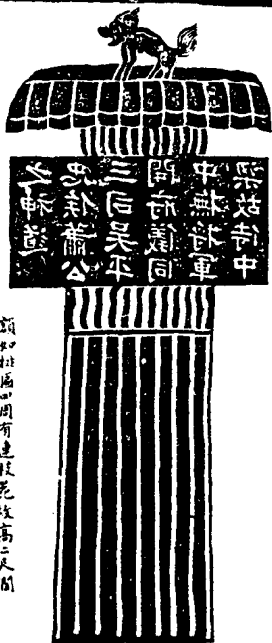 梁故侍中
中撫將軍
開府儀同
三司吳平
忠侯蕭公
之神道
額如挂匾四周有連枝花紋高二尺